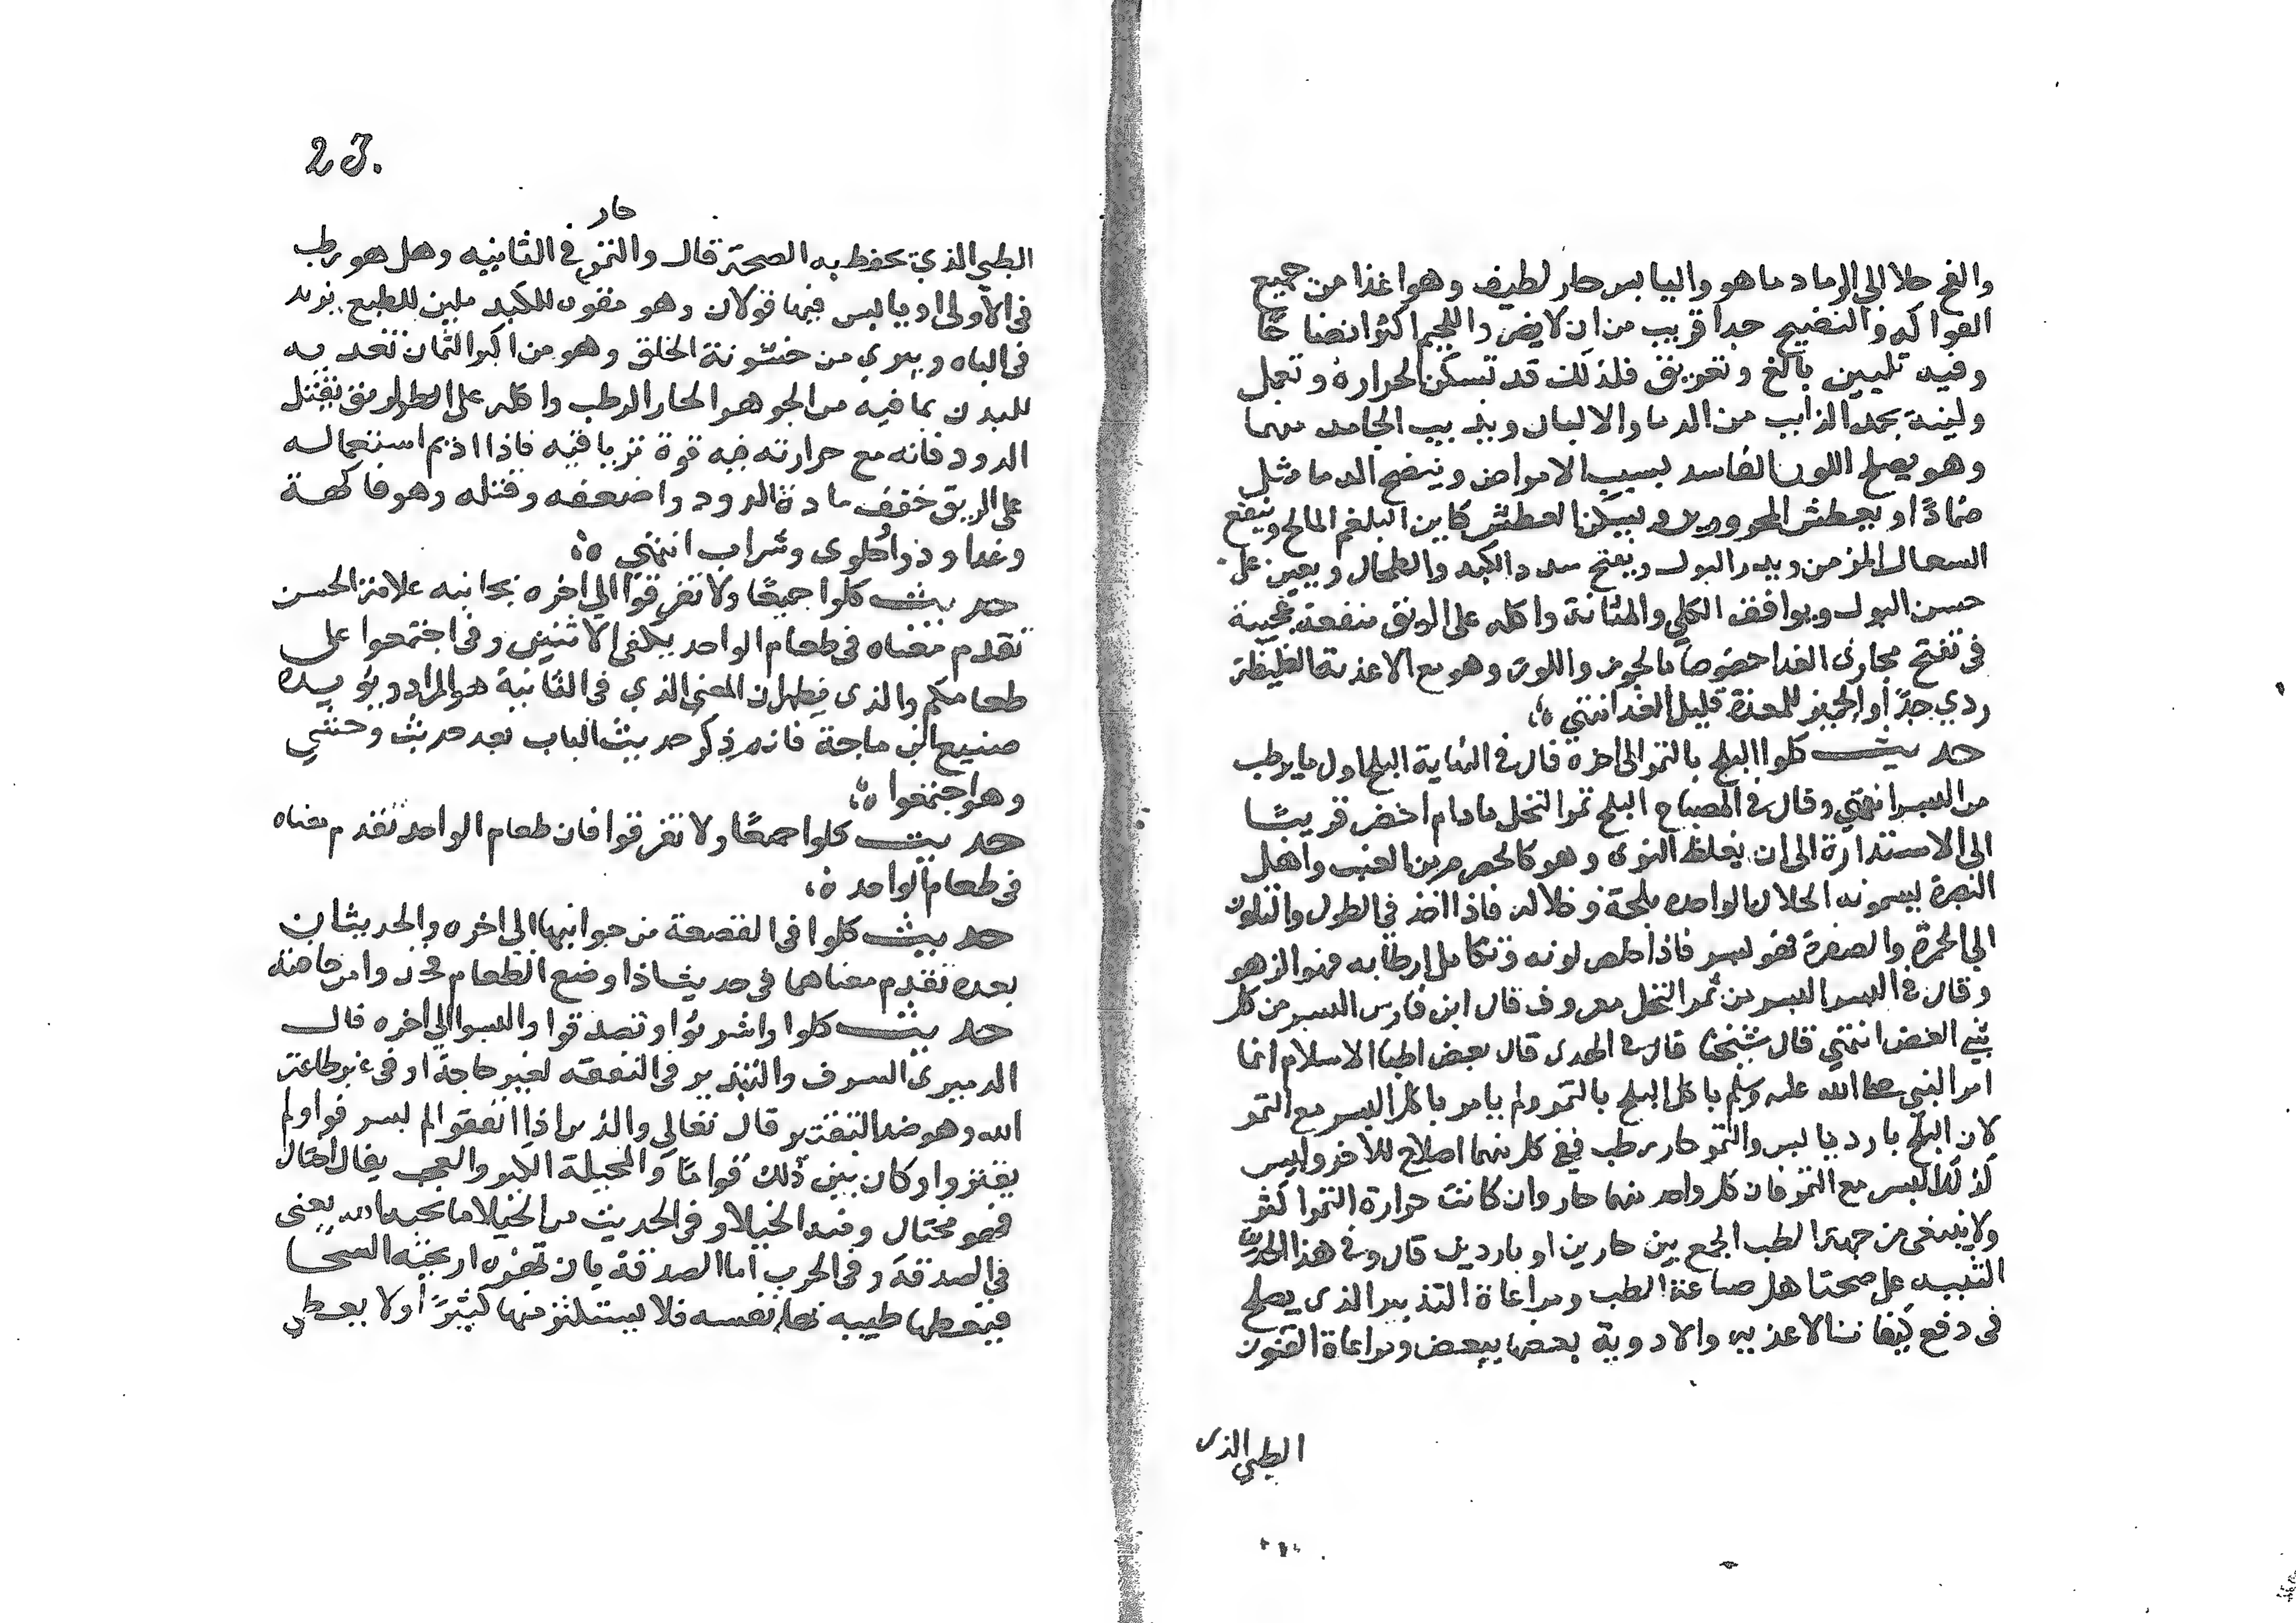 والفج جلا الي الرماد ما هو واليابس حار لطيف وهو اغذا من جميع
الفواكه والنضيج جدا قريب من ان لا يضر واللحيم اكثر انضاجا
وفيه تليين بالغ وتعريق فلذلك قد تسكن الحراره وتعمل
ولينه يجمد الذايب من الدما والالبان ويذيب الجامد منهما
وهو يصلح اللون الفاسد بسبب الامراض وينضج الدماميل
ضمادًا ويعطش المحرورين ويسكن العطش كاين البلغم المالح وينفع
السعال المزمن ويدر البول ويفتح سدد الكبد والطحال ويعين على
حسن البول ويوافق الكلي والمثانة واكله على الريق منفعة عجيبة
في تفتح مجاري الغدا خصوصا بالجوز واللوز وهو مع الاغذية الغليظة
ردي جدًا والجميز للمعدة قليل الغدا انتهي
حديث كلوا البلح بالتمر الى اخره قال في النهاية البلح اول ما يرطب
من البسر انتهي وقال في المصباح البلح تمر النخل ما دام اخضر قريبًا
الى الاستدارة الى ان يغلظ النوى وهو كالحصرم من العنب واهل
البصرة يسمونه الخلال الواحده بلحة وخلاله فاذا اخذ في الطول والتلون
الي الحمرة والصفرة فهو بسر فاذا خلص لونه وتكامل ارطابه فهو الزهو
وقال في البسر البسر من ثمر النخل معروف قال ابن فارس البسر من كل
شي الغض انتهي قال شيخنا قال في الهدى قال بعض اطبا الاسلام انما
امر النبي صلى الله عليه وسلم باكل البلح بالتمر ولم يامر باكل البسر مع التمر
لان البلح بارد يابس والتمر حار رطب ففي كل منهما اصلاح للاخر وليس
كذلك البسر مع التمر فان كل واحد منهما حار وان كانت حرارة التمر اكثر
ولا ينبغي من جهة الطب الجمع بين حارين او باردين قال وفي هذا الحديث
التنبيه على صحة اهل صناعة الطب ومراعاة التدبير الذي يصلح
في دفع كيفيات الاغذيه والادوية بعضها ببعض ومراعاة القانون
الطبي الذى
23.
حار
الطبي الذي يحفظ به الصحة قال والتمر في الثانيه وهل هو رطب
في الأولى او يابس فيها قولان وهو مقوى للكبد ملين للطبع يزيد
في الباه ويبري من خشونة الحلق وهو من اكبر الثمار تغديه
للبدن بما فيه من الجوهر الحار الرطب واكله على الريق يقتل
الدود فانه مع حرارته فيه قوة ترياقيه فاذا اديم استعماله
على الريق خفف مادة الدود واضعفه وقتله وهو فاكهة
وغدا ودوا وحلوى وشراب انتهي
حديث كلوا جميعًا ولا تفرقوا الي اخره بجانبه علامة الحسن
تقدم معناه في طعام الواحد يكفي الاثنين وفي اجتمعوا على
طعامكم والذي يظهر ان المعنى الذي في الثانية هو المراد ويؤيده
صنيع ابن ماجة فانه ذكر حديث الباب بعد حديث وحشي
وهو اجتمعوا
حديث كلوا جميعًا ولا تفرقوا فان طعام الواحد تقدم معناه
في طعام الواحد
حديث كلوا في القصعة من جوانبها الي اخره والحديثان
بعده تقدم معناهما في حديث اذا وضع الطعام فخذوا من حافته
حديث كلوا واشربوا وتصدقوا والبسوا الي اخره قال
الدميري السرف والتبذير في النفقه لغير حاجة او في غير طاعة
الله وهو ضد التقتير قال تعالي والذين اذا انفقوا لم يسرفوا ولم
يقتروا وكان بين ذلك قواما والمخيلة الكبر والعجب يقال اختال
فهو مختال وفيه الخيلا وفي الحديث من الخيلا ما يحبها الله يعني
في الصدقة وفي الحرب اما الصدقة بان تهزه اريحية السخا
فيعطيها طيبة بها نفسه فلا يستكثر منها كثيرًا ولا يعطي